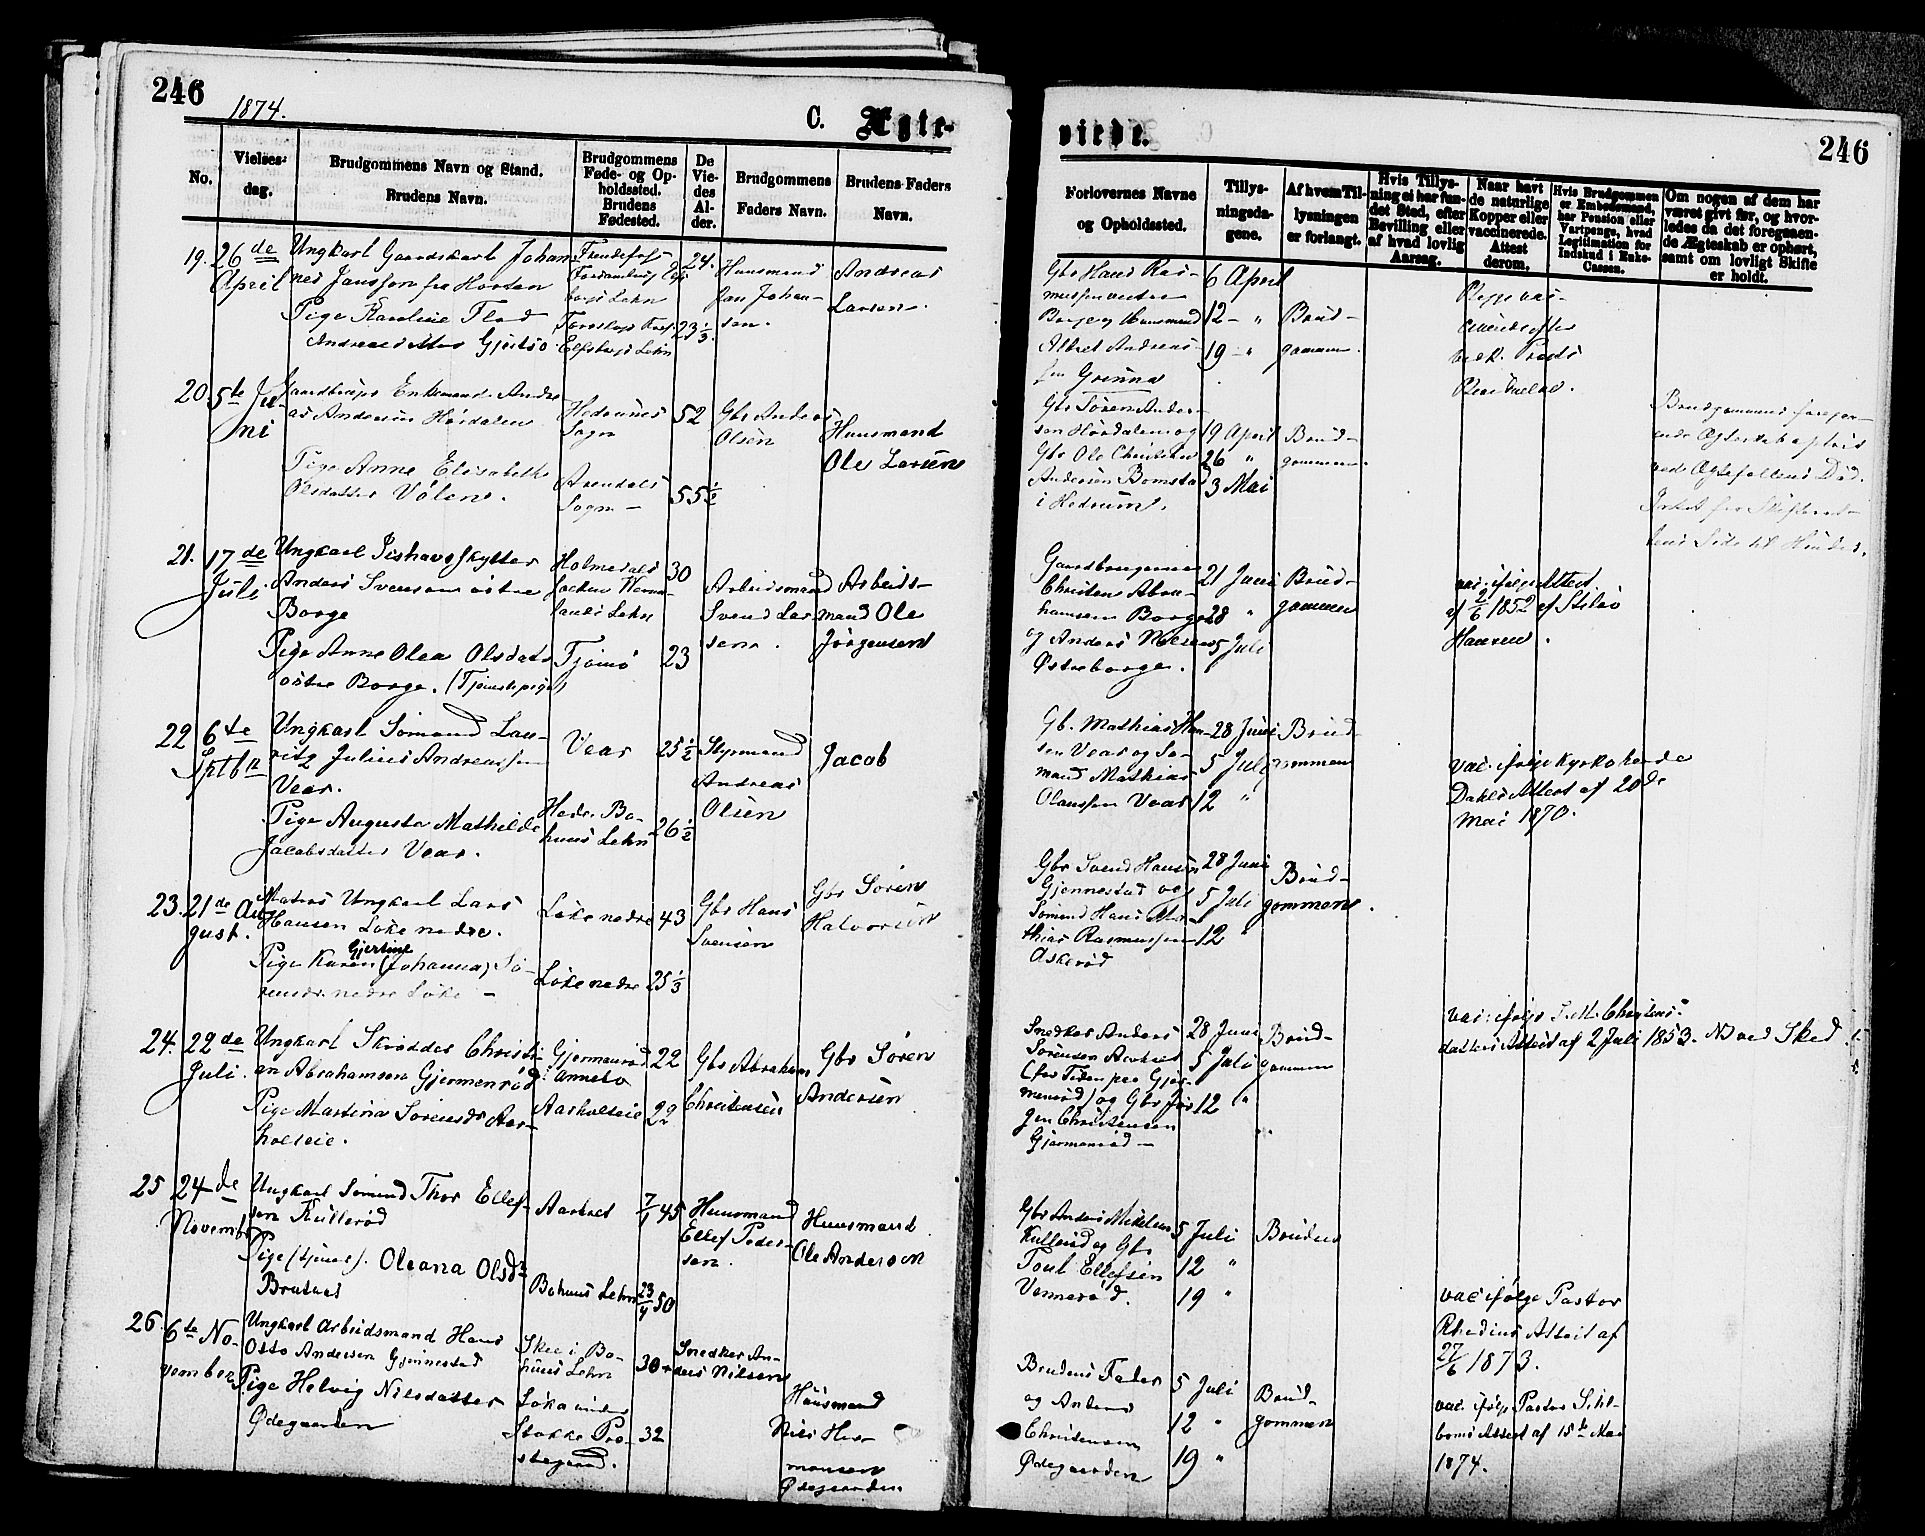 246
1874.
C. Ægte-
No.
Vielses-
dag.
Brudgommens Navn og Stand.
Brudens Navn.
Brudgommens
Føde- og Op-
holdssted.
Brudens
Fødested.
De
Vie-
des
Al-
der.
Brudgommens
Faders Navn.
Brudens Faders
Navn.
19.
26de
April
Ungkarl Gaardskarl Johan-
nes Janssen fra Horten
Pige Karoline Flod
Andreasdatter Gjertsø
24.
23 1/3
Huusmand
Jan Johan-
sen.
Andreas
Larsen.
20.
5te Ju-
ni
Gaardbruger Enkemand Andre-
as Andersen Hørdalen
Pige Anne Elisabeth
Olsdatter Vølen.
Hedrums
Sogn
Arendals
Sogn
52
55 1/2
Gbr Anders
Olsen
Huusmand
Ole Larsen
21.
17de
Juli
Ungkarl
Anders Svensen østre
Borge
Pige Anne Olea Olsdatr
østre Borge. (Tjenestepige)
Holmedals
Lehn
Tjømø
30
23
Arbeidsmand
Svend Lar-
sen.
Arbeids-
mand Ole
Jørgensen
22
6te
Septbr
Ungkarl Sømand Lau-
ritz Julius Andreassen
Vear.
Pige Augusta Mathilde
Jacobsdatter Vear.
Vear
Hede, Ba-
huus Lehn
25 1/2
26 1/2
Styrmand
Andreas
Olsen
Jacob
23.
21de Au-
gust.
Matros Ungkarl Lars
Hansen Løke nedre.
Gjertine
Pige Karen (Johanna) Sø-
rensdr. nedre Løke
Løke nedre
Løke nedre
43
25 1/3
Gbr Hans
Svensen
Gbr Søren
Halvorsen
24.
22de
Juli.
Ungkarl Skrædder Christi-
an Abrahamsen Gjermenrød
Pige Martina Sørensdr Aar-
holseie.
Gjermenrød
i Annebo
Aarholseie
22
22
Gbr Abraham
Christensen
Gbr Søren
Andersen
25
24de
Novembr
Ungkarl Sømand Thor Ellef-
sen Kullerød
Pige (tjenest). Oleana Olsdr
Bratnes
Bahuus Lehn
7/1 45
23/4 50
Huusmand
Ellef Peder-
sen.
Huusmand
Ole Andersen
26
6te No-
vember
Ungkarl Arbeidsmand Hans
Otto Andersen Gjennestad
Pige Helvig Nilsdatter
Ødegaarden
Skee i Ba-
huus Lehn
Løka under
Stokke Præ-
stegaard.
30
32
Snedker An-
ders Nilsen
Huusmand
Nils Her-
mansen
Ødegaarden
246
viede.
Forlovernes Navne
og Opholdssted.
Tillys-
ningsda-
gene.
Af hvem Til-
lysningen
er forlangt.
Hvis Tillys-
ning ei har fun-
det Sted, efter
Bevilling eller
af hvad lovlig
Aarsag.
Naar havt
de naturlige
Kopper eller
vaccinerede.
Attest
derom.
Hvis Brudgommen
er Embedsmand,
har Pension eller
Vartpenge, hvad
Legitimation for
Indskud i Enke-
Cassen.
Om nogen af dem har
været givt før, og hvor-
ledes da det foregaaen-
de Ægteskab er ophørt,
samt om lovligt Skifte
er holdt.
Gbr Hans Ras-
mussen vestre
Borge og Huusmand
Albret Andreas-
sen Grinna
6 April
12 "
19 "
Brud-
gommen.
Gbr Søren Ander-
sen Hørdalen og
Gbr Ole Christian
Andersen Bomstad
i Hedrum.
19 April
26 "
3 Mai
Brud-
gommen.
Brudgommens foregaa-
ende Ægteskab ophørt
ved Ægtefællens Død.
Gaardbrugerne
Christen Abra-
hamsen Borge
og Anders Nilsen
Østreborge.
21 Juni
28 "
5 Juli
Brud-
gommen
vac. ifølge Attest
af 2/6 1852 af
Hansen.
Gb. Mathias Han-
sen Vear og Sø-
mand Mathias
Olaussen Vear
28 Juni
5 Juli
12 "
Brud-
gommen
vac. ifølge Kyrkoherde
Dahls Attest af 20de
Mai 1870.
Gbr Svend Hansen
Gjennestad og
Sømand Hans Ma-
thias Rasmussen
Askerød
28 Juni
5 Juli
12 "
Brud-
gommen.
Snedker Anders
Sørensen
(for Tiden paa Gjer-
menrød) og Gbr Jør-
gen Christensen
Gjermenrød
28 Juni
5 Juli
12 "
Brud-
gommen
vac. ifølge Christens-
datters Attest af 2 Juli 1853.
Gbr Anders Mikelsen
Kullerød og Gbr
Poul Ellefsen
Vennerød.
5 Juli
12 "
19 "
Bruden
vac ifølge Pastor
Rhedins Attest af
27/6 1873.
Brudens Fader
og Anders
Christensen
Ødegaarden
5 Juli
12 "
19 "
Brud-
gommen
vac. ifølge Pastor
Attest af 15de Mai
1874.